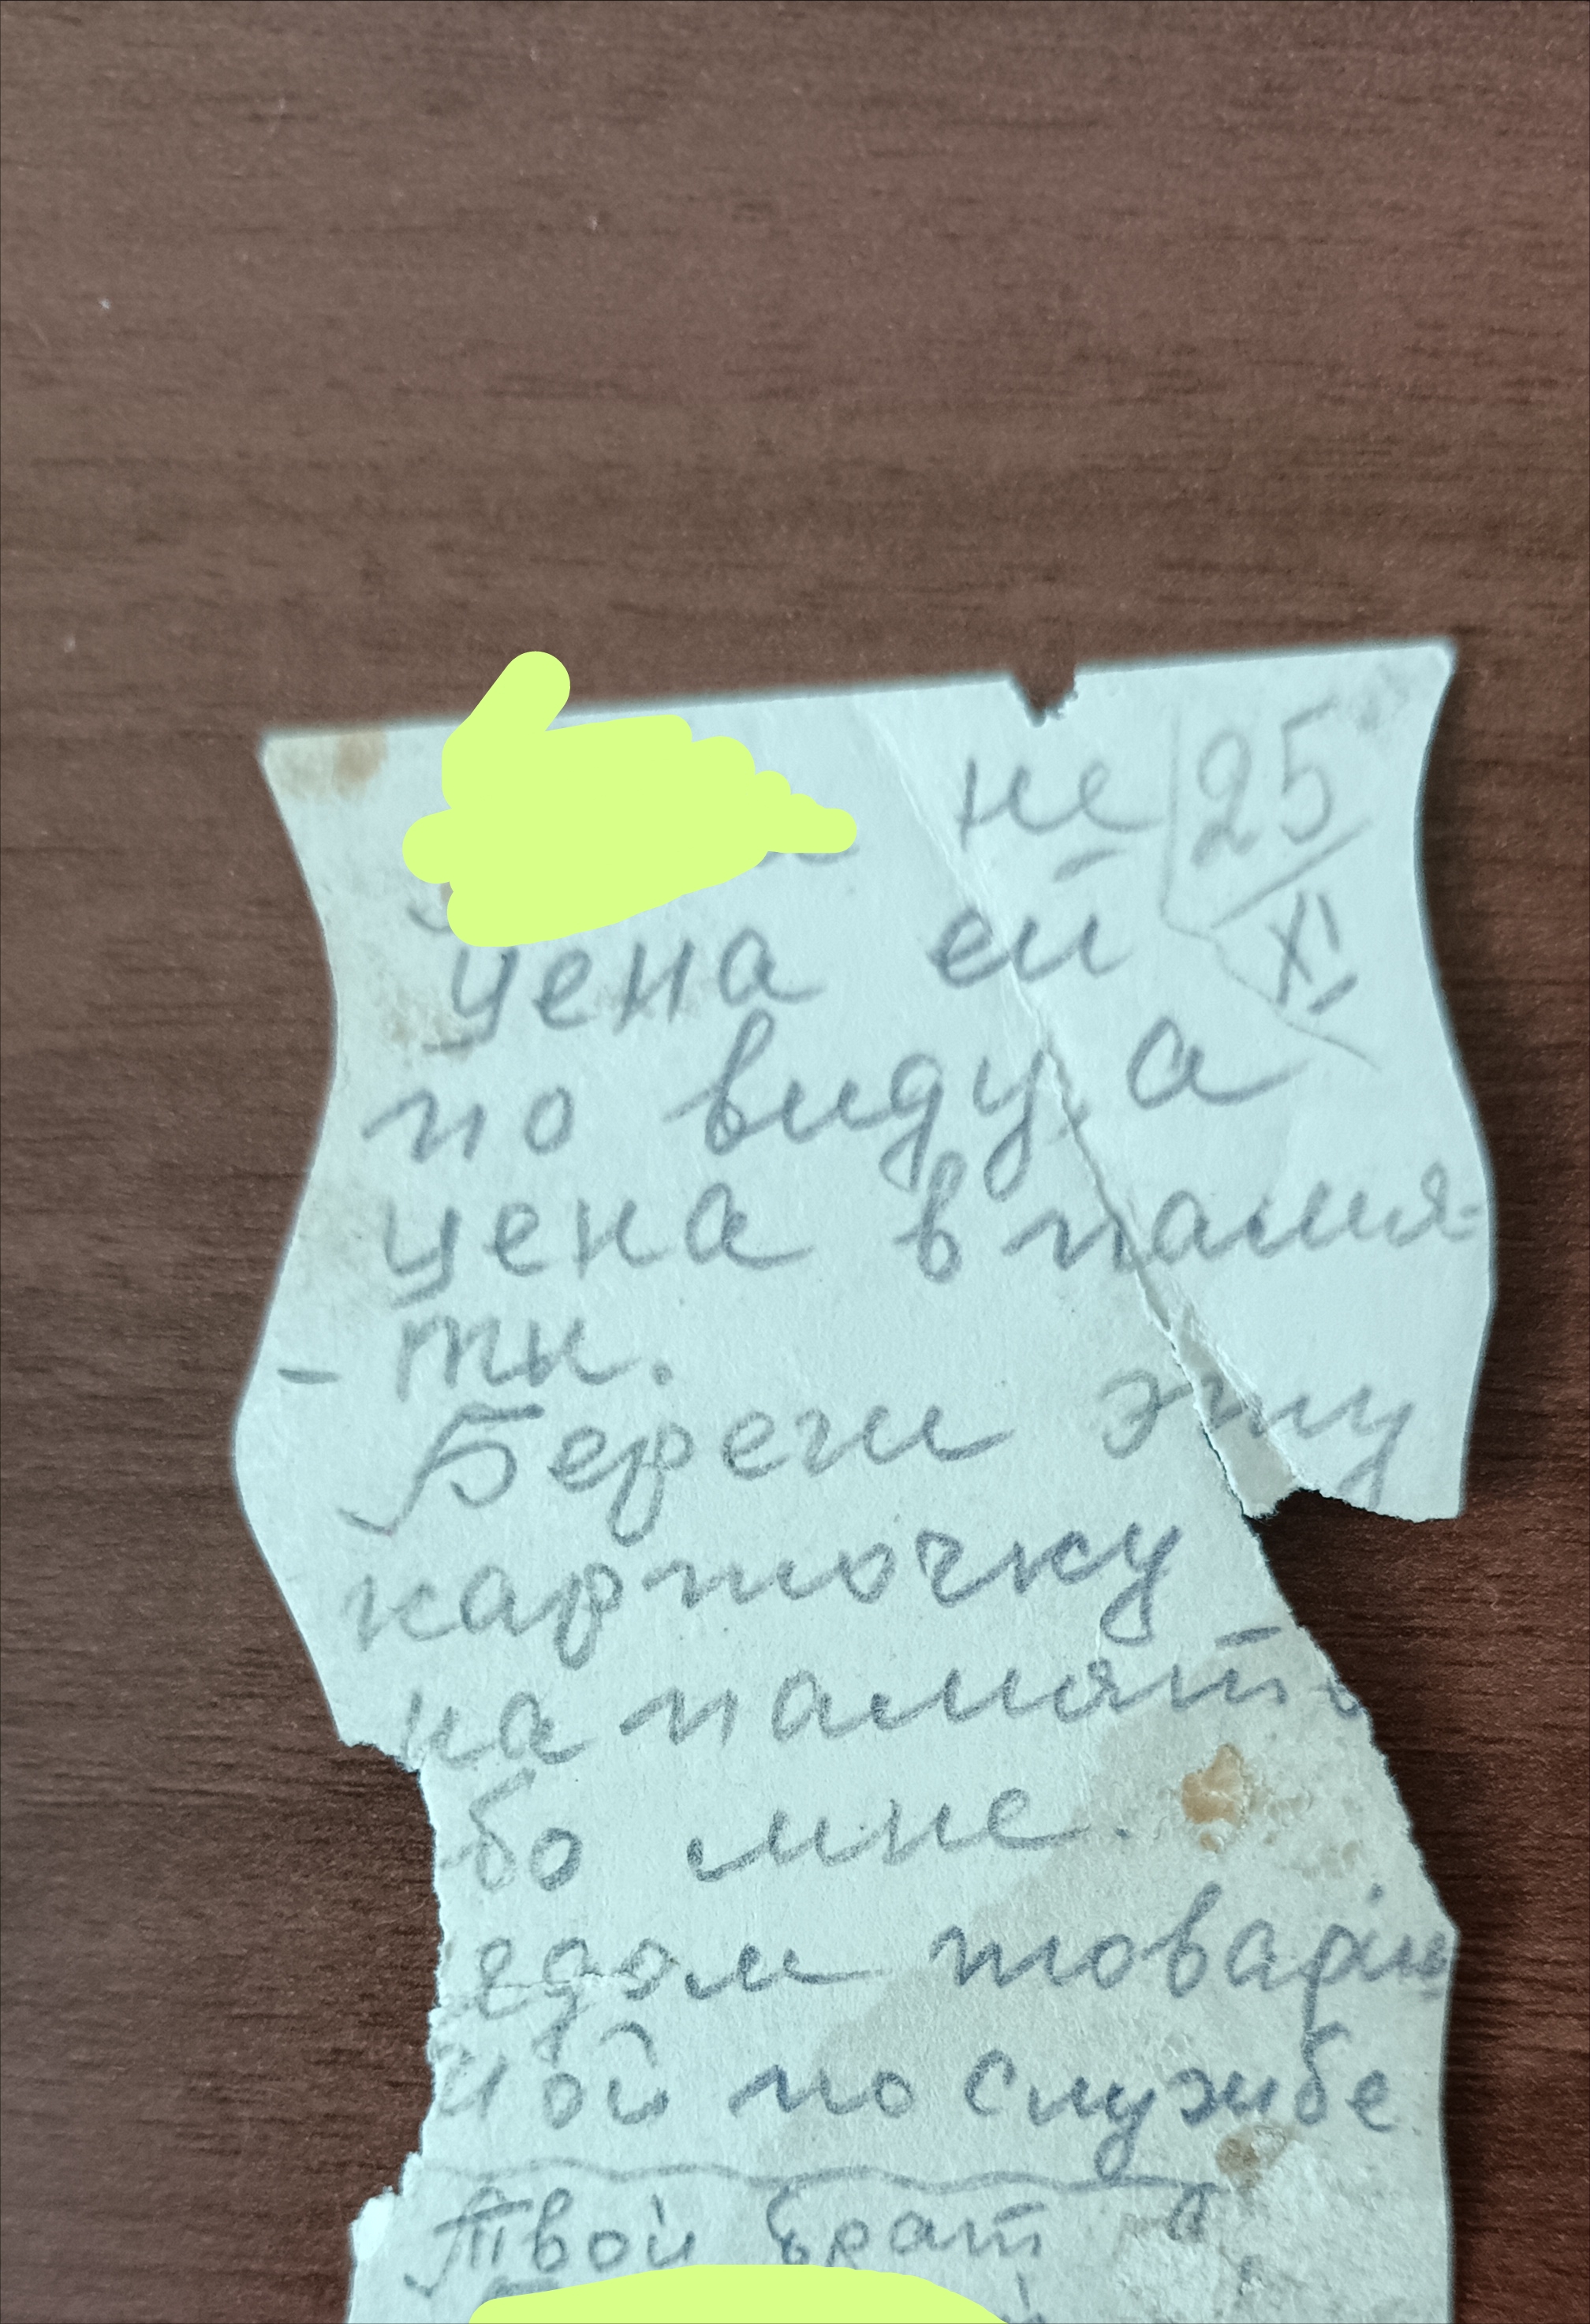 не 25
XI
цена ей
по виду, а
цена в памя-
- ти.
Береги эту
карточку
на память
бо мне.
товарищ
мой по службе
Твой брат